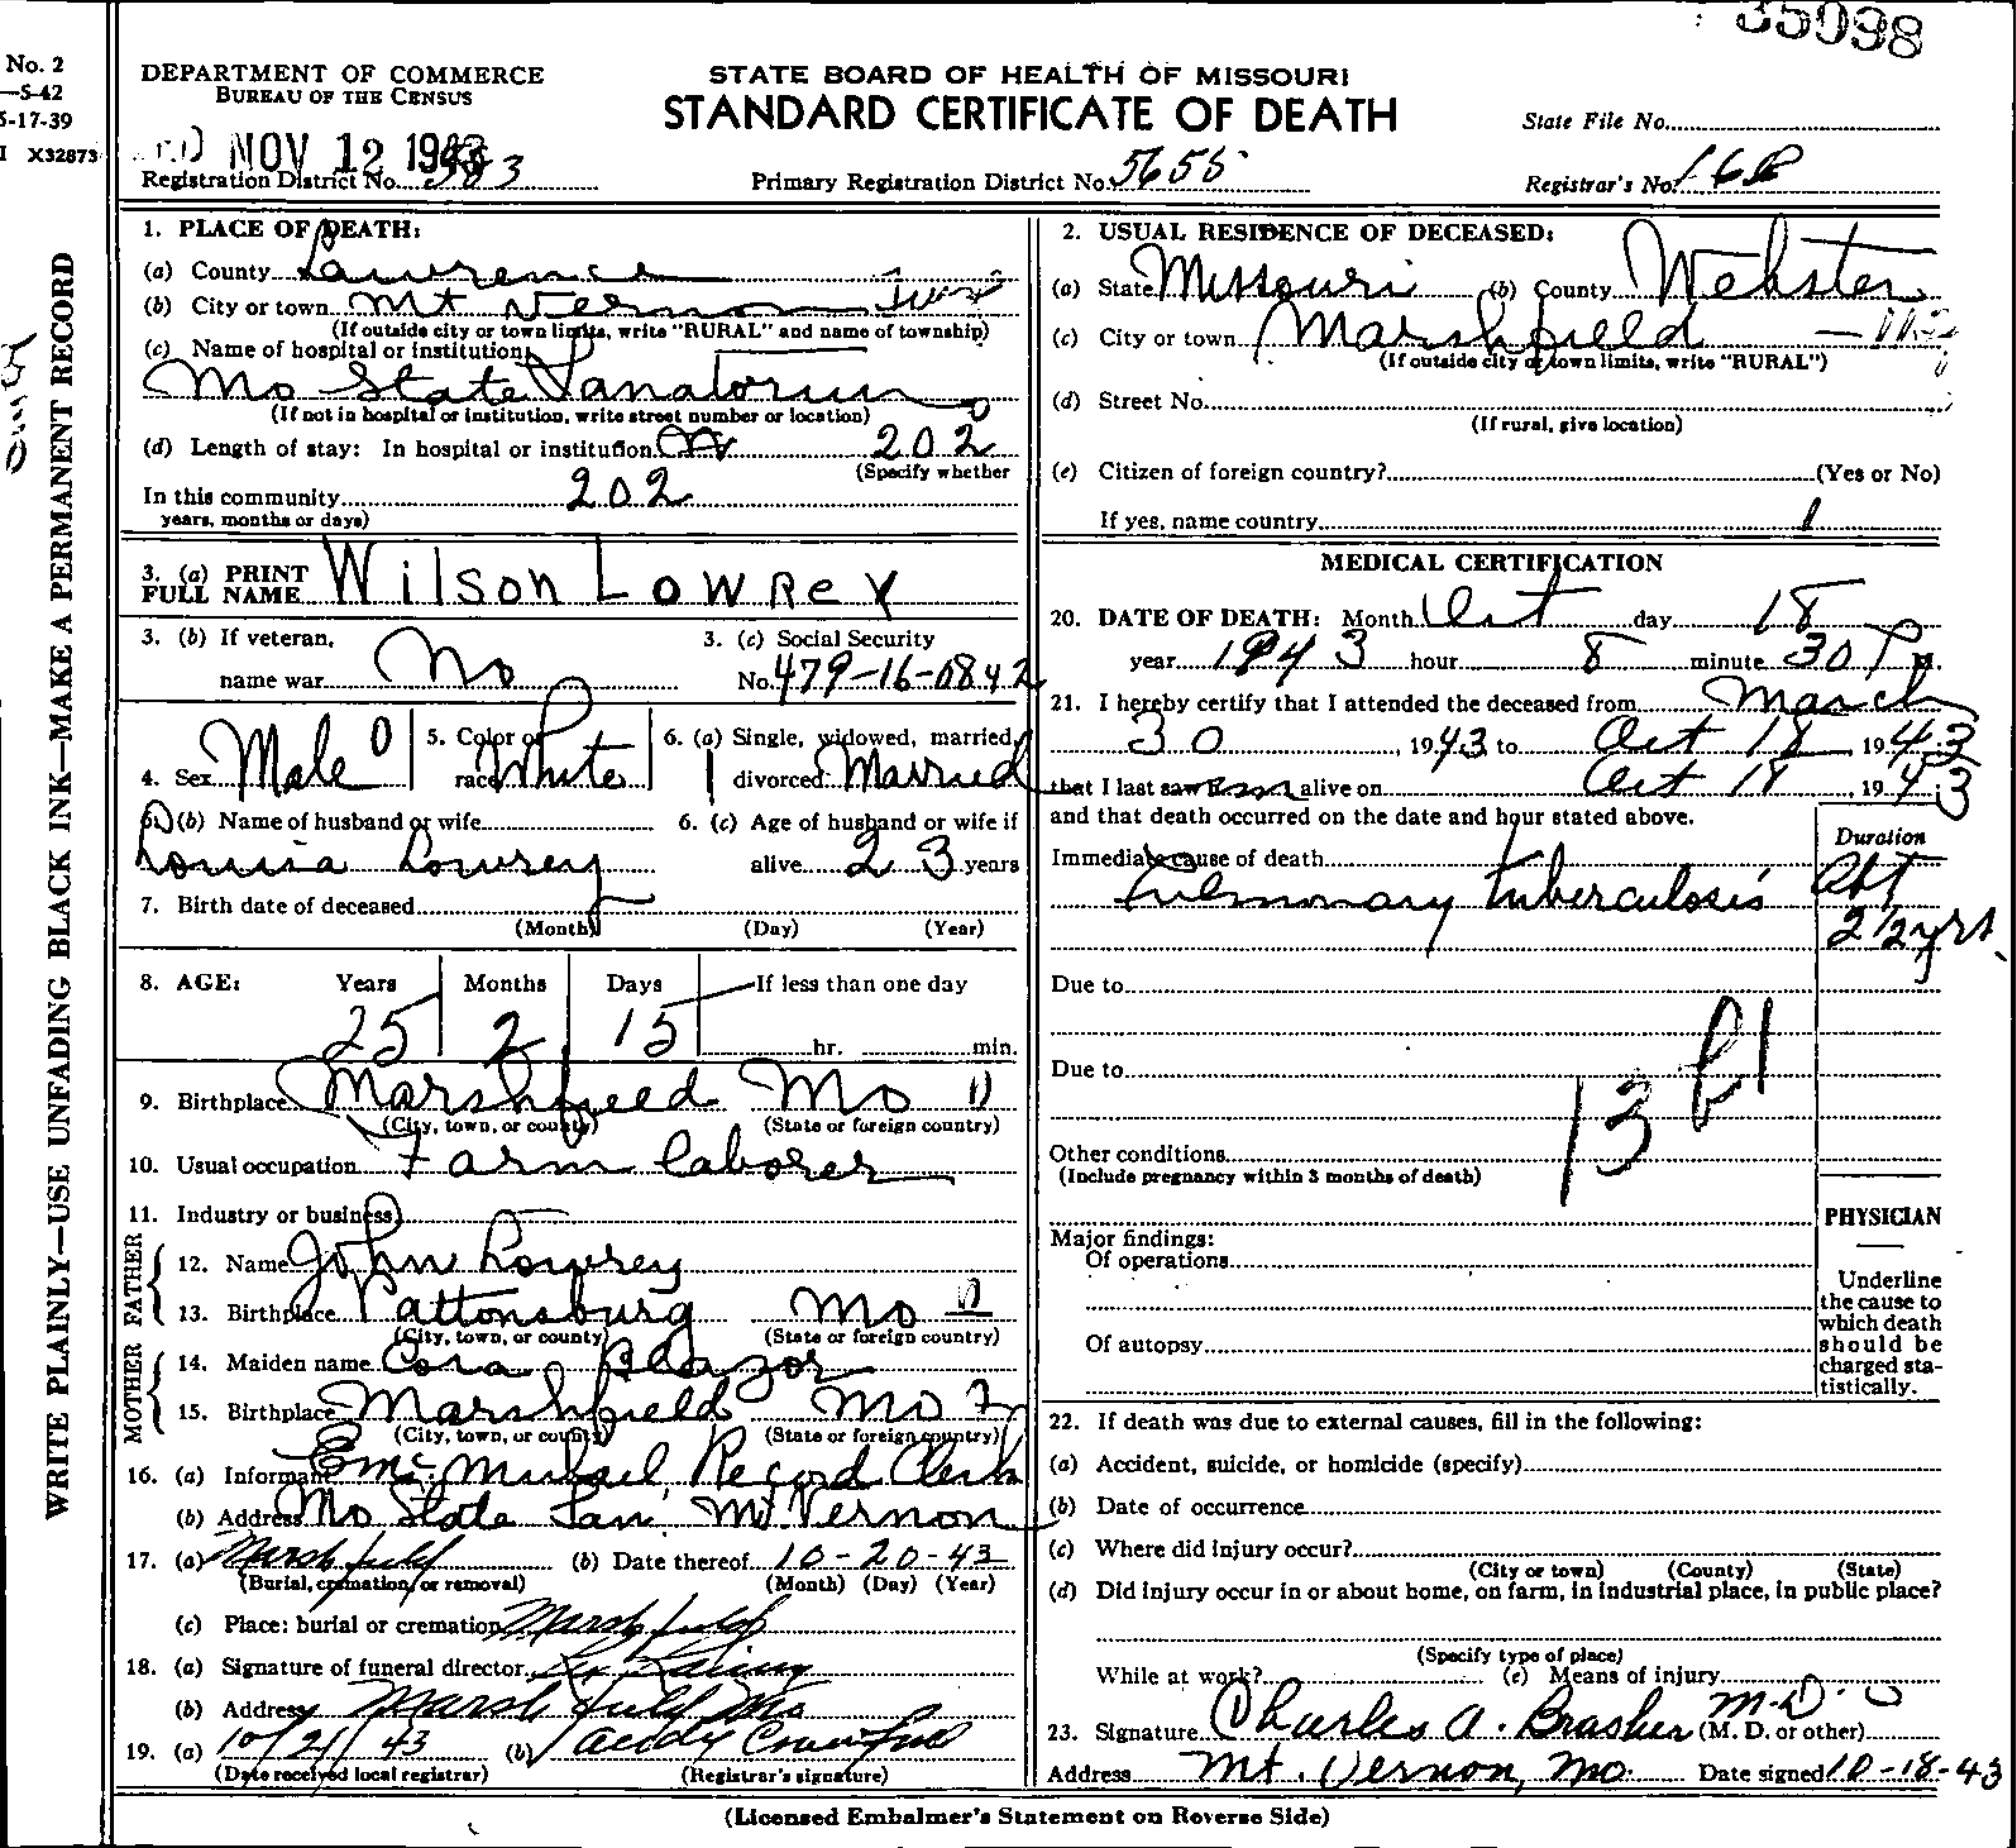 35098
No. 2
—S-42
5-17-39
I X32873
DEPARTMENT OF COMMERCE
BUREAU OF THE CENSUS
STATE BOARD OF HEALTH OF MISSOURI
STANDARD CERTIFICATE OF DEATH
State File No.
NOV 12 1943
Registration District No. 383
Primary Registration District No. 5655
Registrar's No. 168
WRITE PLAINLY—USE UNFADING BLACK INK—MAKE A PERMANENT RECORD
1. PLACE OF DEATH:
(a) County Lawrence
(b) City or town Mt Vernon
(If outside city or town limits, write "RURAL" and name of township)
(c) Name of hospital or institution:
Mo State Sanatorium
(If not in hospital or institution, write street number or location)
(d) Length of stay: In hospital or institution 202
(Specify whether
In this community 202
years, months or days)
2. USUAL RESIDENCE OF DECEASED:
(a) State Missouri (b) County Webster
(c) City or town Marshfield
(If outside city or town limits, write "RURAL")
(d) Street No.
(If rural, give location)
(e) Citizen of foreign country? (Yes or No)
If yes, name country
3. (a) PRINT FULL NAME Wilson Lowrey
3. (b) If veteran, name war no
3. (c) Social Security No. 479-16-0842
4. Sex Male
5. Color or race White
6. (a) Single, widowed, married, divorced Married
6. (b) Name of husband or wife
Louisa Lowrey
6. (c) Age of husband or wife if alive 23 years
7. Birth date of deceased
(Month) (Day) (Year)
8. AGE: Years Months Days If less than one day
25 2 15 hr. min.
9. Birthplace Marshfield Mo
(City, town, or county) (State or foreign country)
10. Usual occupation Farm laborer
11. Industry or business
FATHER
12. Name John Lowrey
13. Birthplace Pattonsburg Mo
(City, town, or county) (State or foreign country)
MOTHER
14. Maiden name Cora
15. Birthplace Marshfield Mo
(City, town, or county) (State or foreign country)
16. (a) Informant Record Clerk
(b) Address Mo State San. Mt. Vernon
17. (a) Marshfield (b) Date thereof 10-20-43
(Burial, cremation, or removal) (Month) (Day) (Year)
(c) Place: burial or cremation Marshfield
18. (a) Signature of funeral director
(b) Address Marshfield Mo
19. (a) 10/21/43 (b) Crawford
(Date received local registrar) (Registrar's signature)
MEDICAL CERTIFICATION
20. DATE OF DEATH: Month Oct day 18
year 1943 hour 8 minute 30 P m.
21. I hereby certify that I attended the deceased from March
30, 1943 to Oct 18, 1943
that I last saw him alive on Oct 18, 1943
and that death occurred on the date and hour stated above.
Duration
Immediate cause of death
Pulmonary tuberculosis
Abt
2 1/2 yrs.
Due to
Due to
13
Other conditions
(Include pregnancy within 3 months of death)
Major findings:
Of operations
Of autopsy
PHYSICIAN
Underline
the cause to
which death
should be
charged sta-
tistically.
22. If death was due to external causes, fill in the following:
(a) Accident, suicide, or homicide (specify)
(b) Date of occurrence
(c) Where did injury occur?
(City or town) (County) (State)
(d) Did injury occur in or about home, on farm, in industrial place, in public place?
(Specify type of place)
While at work? (e) Means of injury
23. Signature Charles A. Brasher M.D. (M. D. or other)
Address Mt. Vernon, Mo. Date signed 10-18-43
(Licensed Embalmer's Statement on Reverse Side)